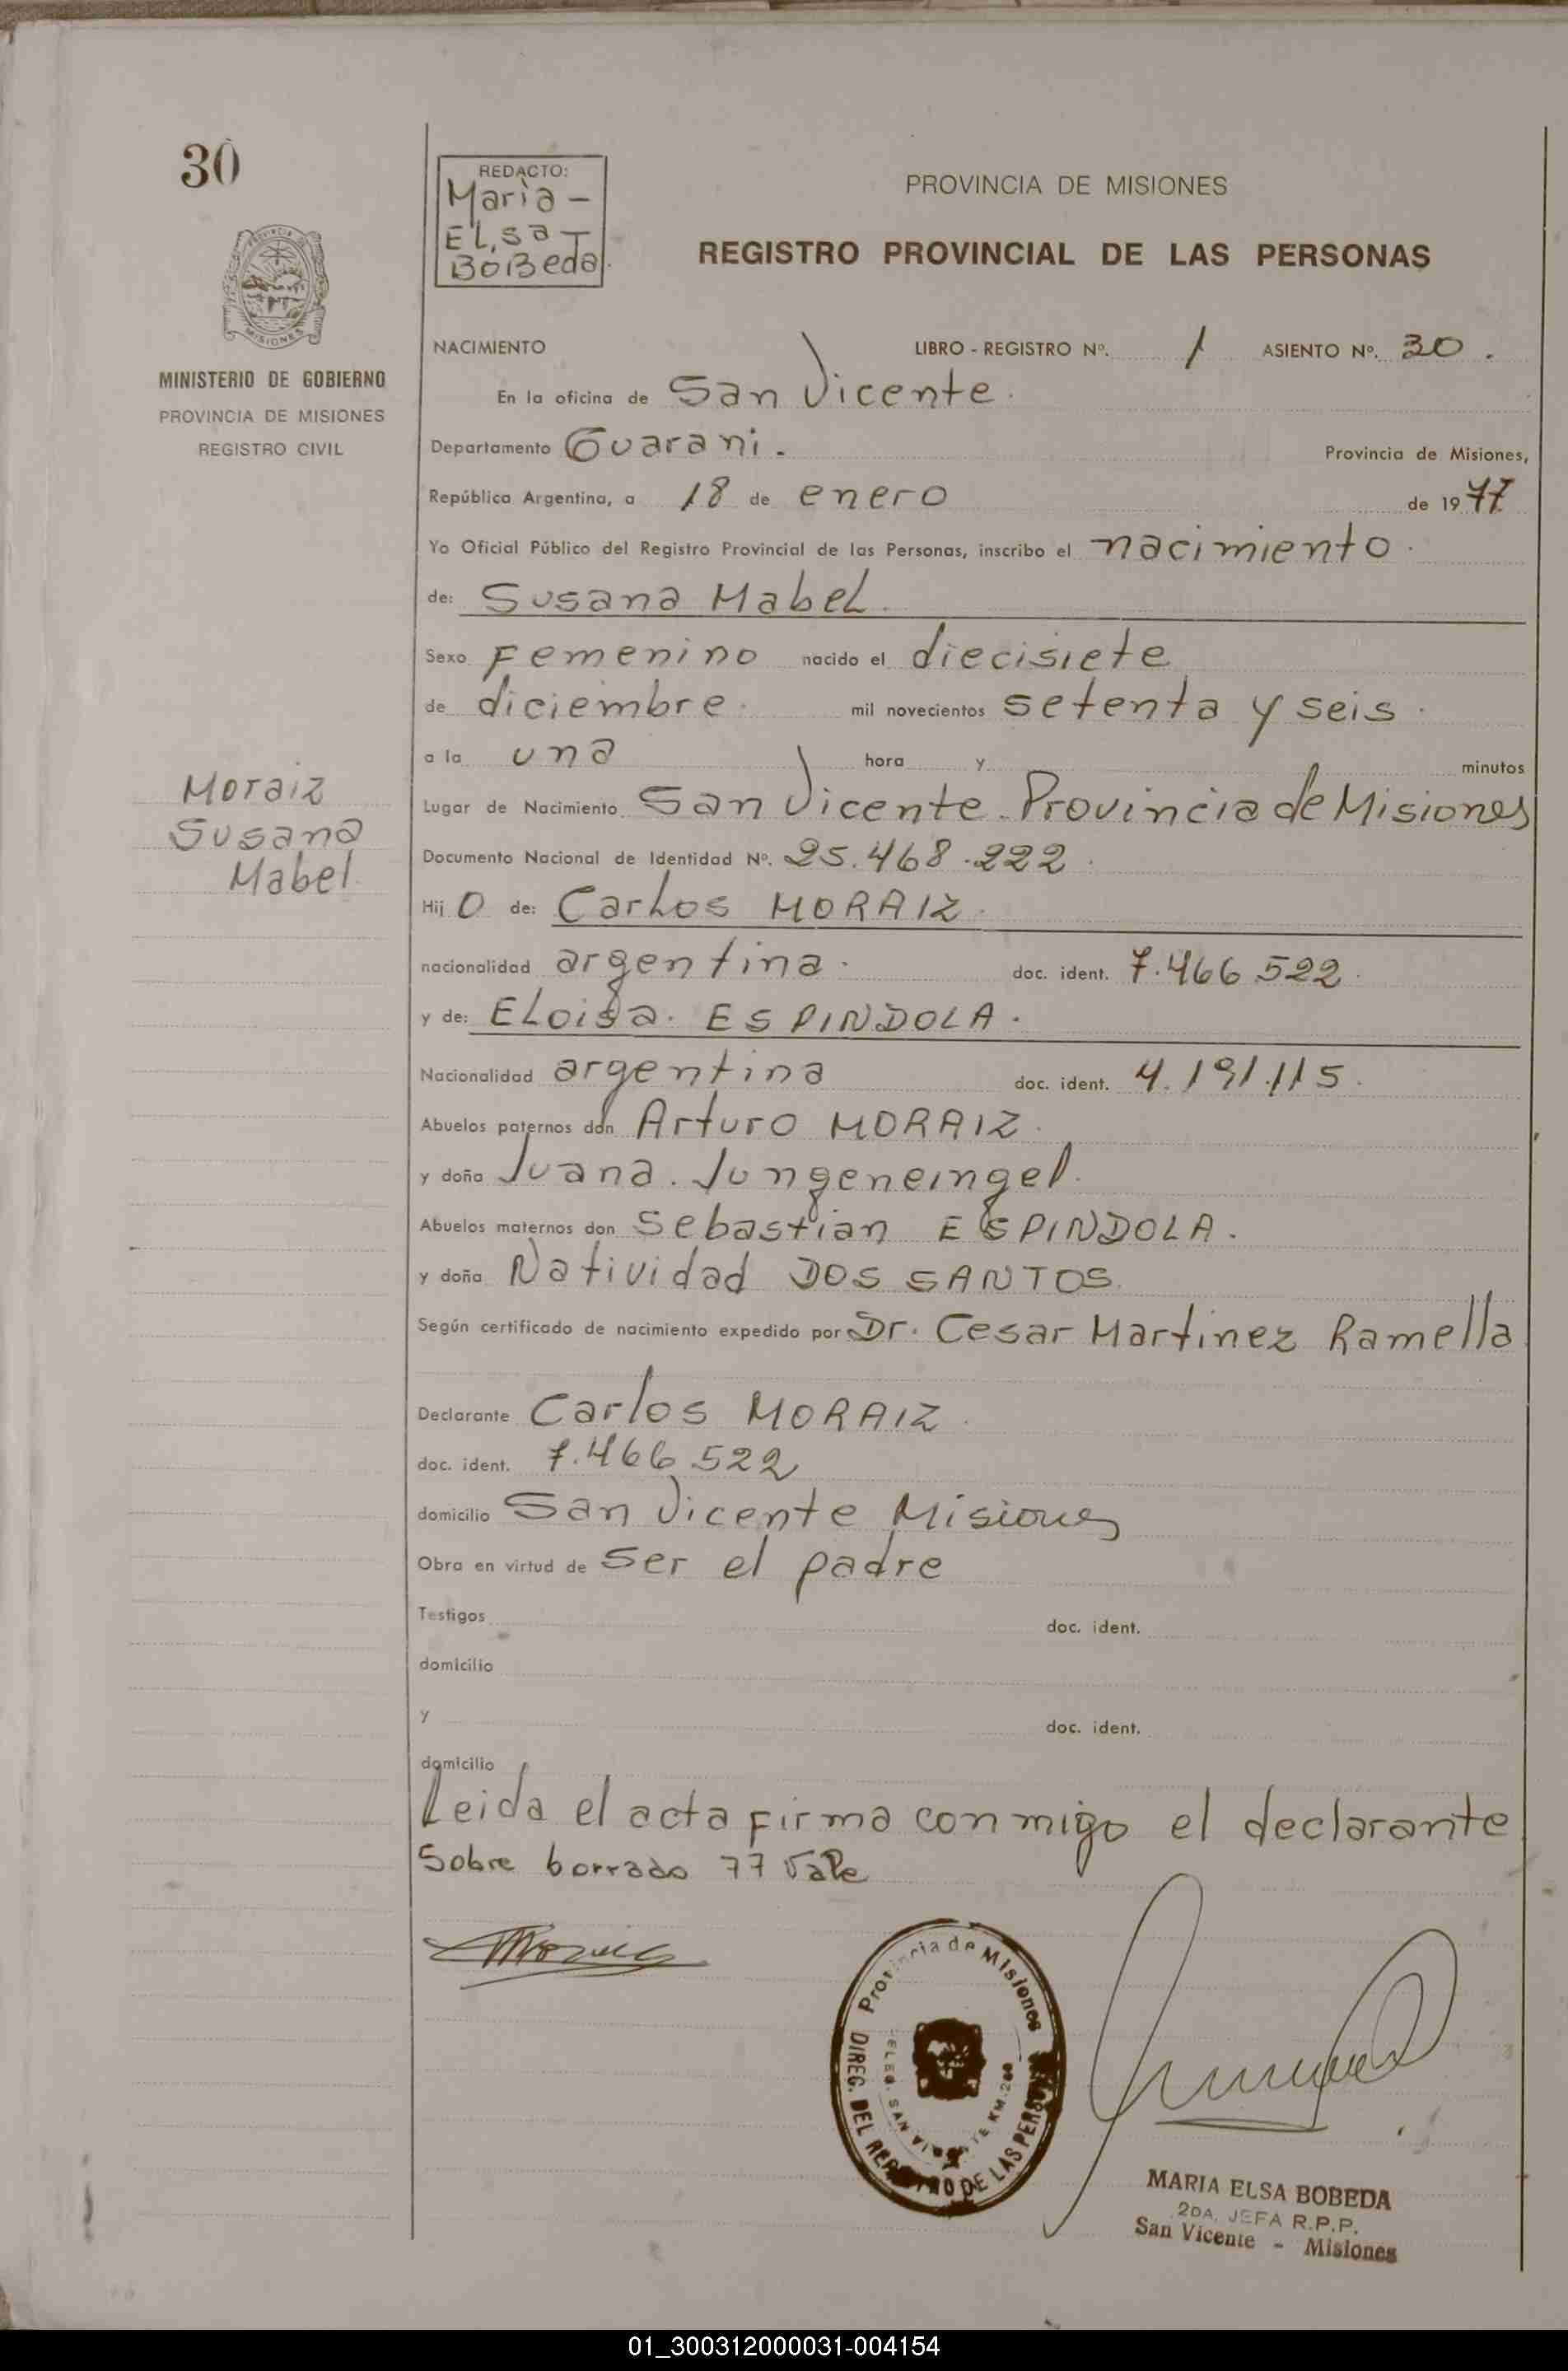 30
REDACTO:
Maria -
ELsa -
BoBeda.
PROVINCIA DE MISIONES
REGISTRO PROVINCIAL DE LAS PERSONAS
PROVINCIA DE
MISIONES
MINISTERIO DE GOBIERNO
PROVINCIA DE MISIONES
REGISTRO CIVIL
NACIMIENTO LIBRO - REGISTRO Nº. 1 ASIENTO Nº. 30.
En la oficina de San Vicente.
Departamento Guarani. Provincia de Misiones,
República Argentina, a 18 de enero de 1977
Yo Oficial Público del Registro Provincial de las Personas, inscribo el nacimiento.
de: Susana Mabel.
Sexo Femenino nacido el diecisiete
de diciembre. mil novecientos setenta y seis.
a la una hora y minutos
Moraiz
Susana
Mabel
Lugar de Nacimiento San Vicente. Provincia de Misiones
Documento Nacional de Identidad Nº. 25.468.222.
Hij O de: Carlos MORAIZ.
nacionalidad argentina. doc. ident. 7.466.522.
y de: ELoisa. ESPINDOLA.
Nacionalidad argentina doc. ident. 4.191.115.
Abuelos paternos don Arturo MORAIZ.
y doña Juana. Jungeneingel.
Abuelos maternos don Sebastian ESPINDOLA.
y doña Natividad DOS SANTOS.
Según certificado de nacimiento expedido por Dr. Cesar Martinez Ramella.
Declarante Carlos MORAIZ.
doc. ident. 7.466.522
domicilio San Vicente Misiones
Obra en virtud de Ser el padre
Testigos doc. ident.
domicilio
y doc. ident.
domicilio
Leida el acta firma conmigo el declarante.
Sobre borrado 77 Vale
Provincia de Misiones
DIREG. DEL REGISTRO DE LAS PERSONAS
MARIA ELSA BOBEDA
2DA. JEFA R.P.P.
San Vicente - Misiones
01_300312000031-004154